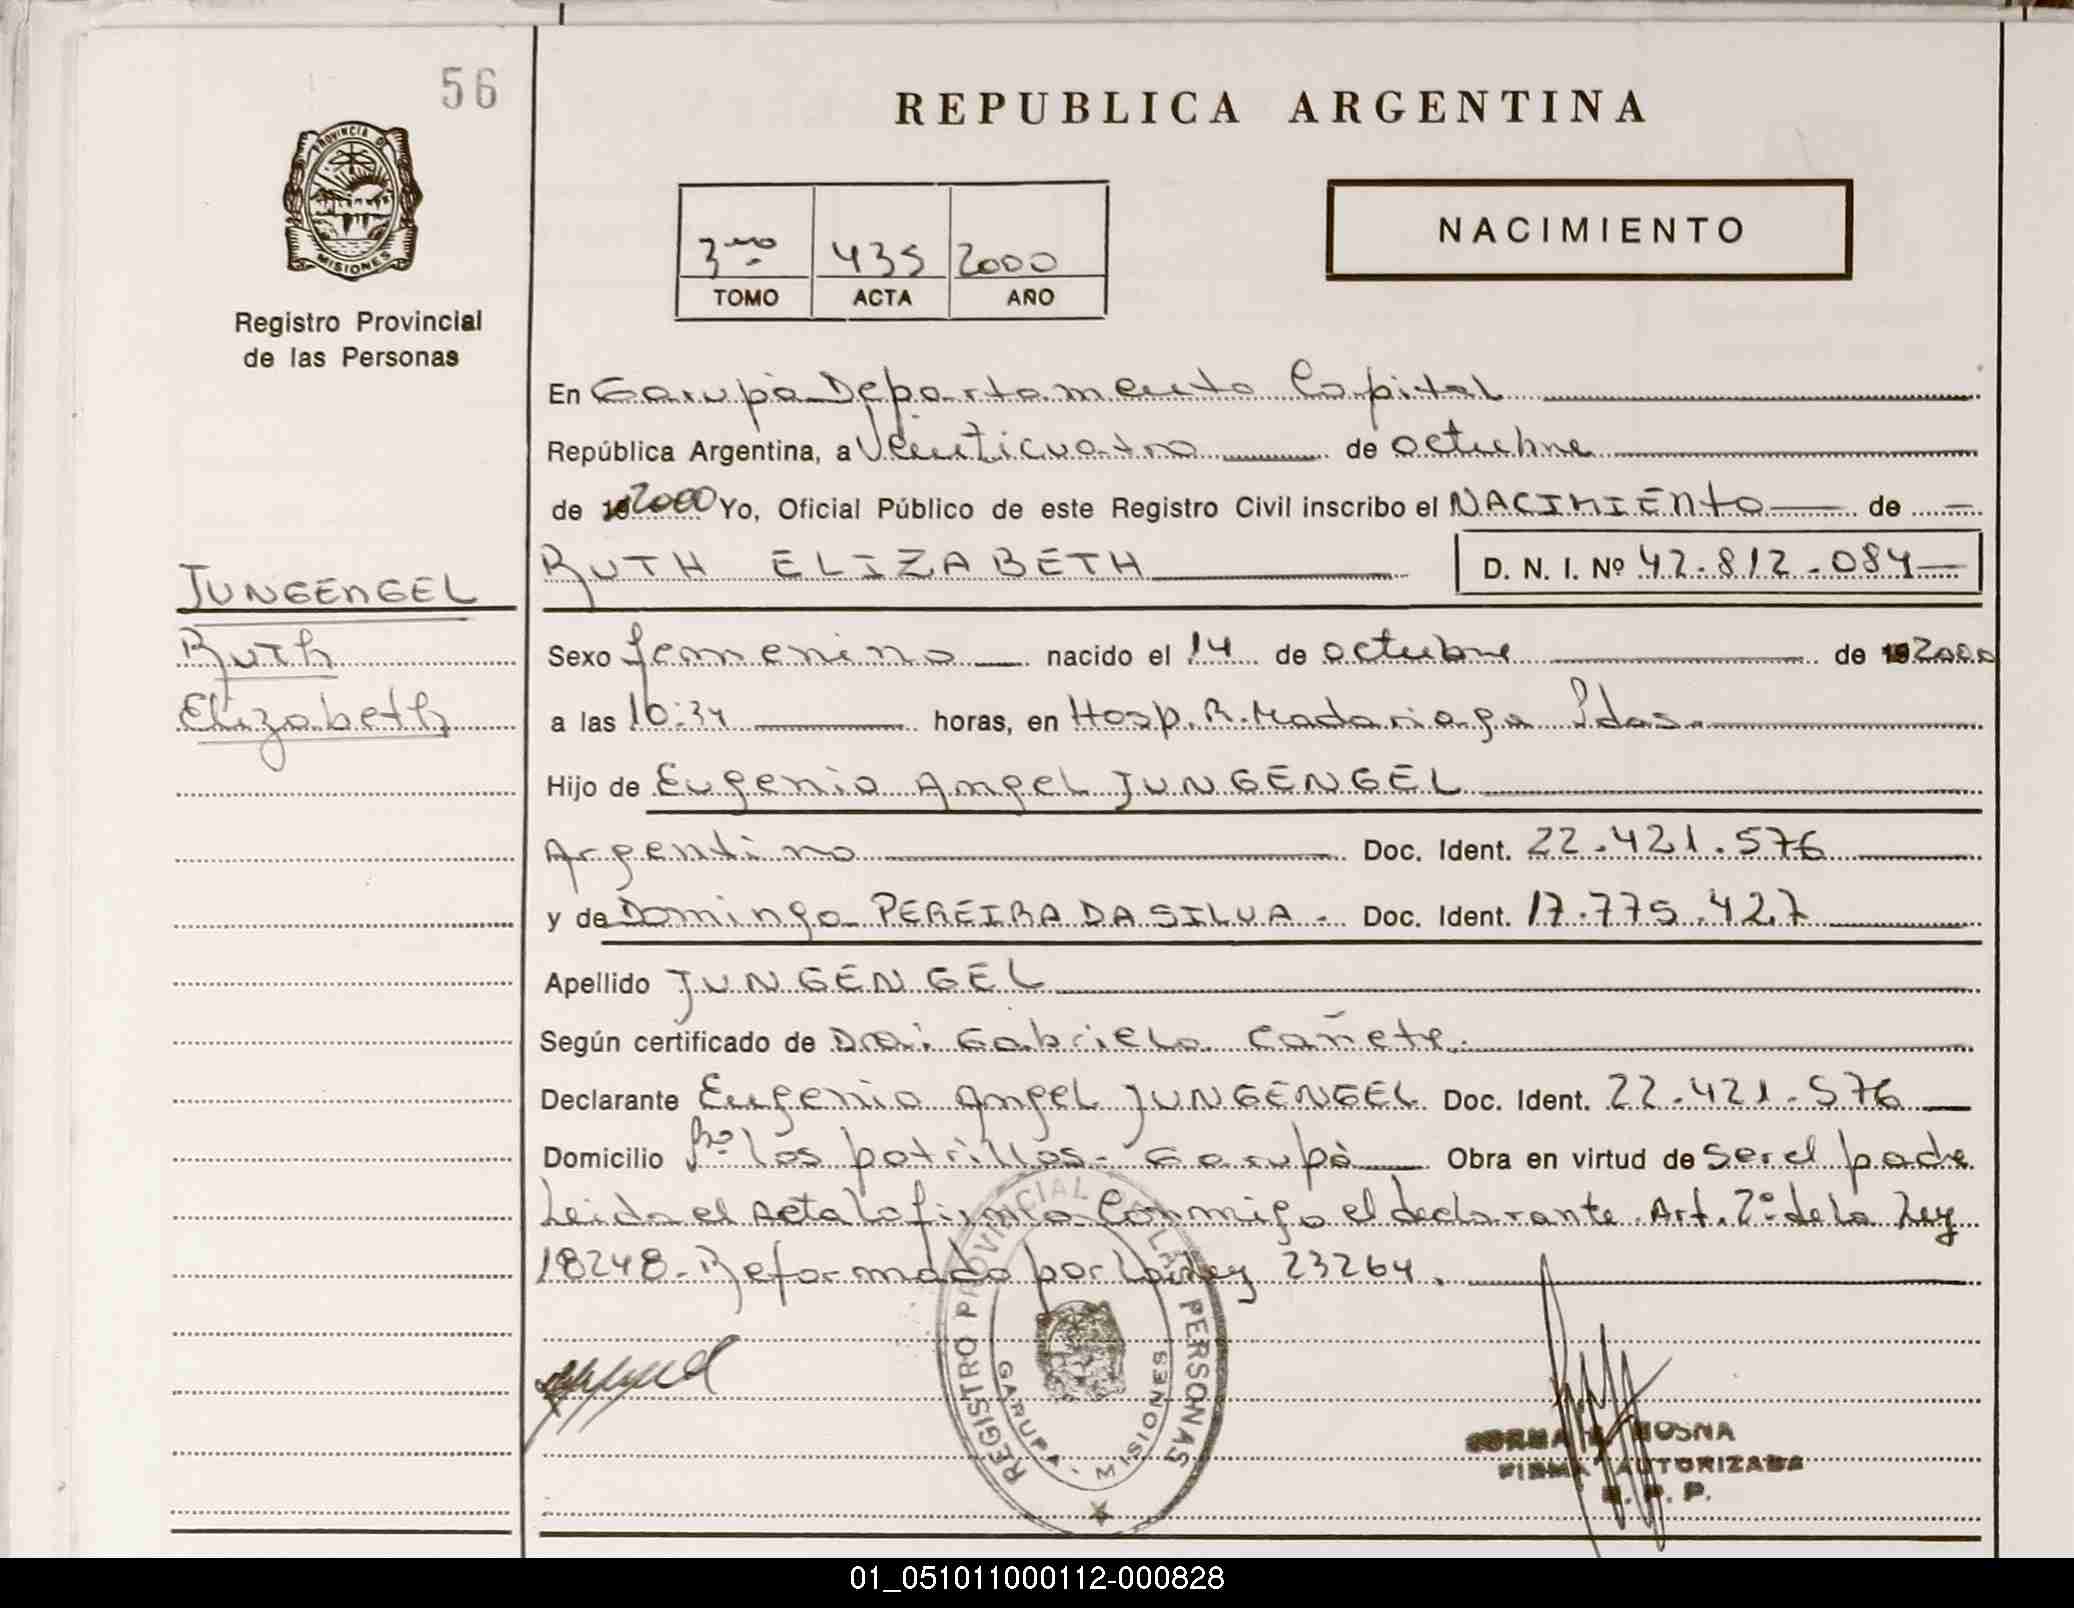 56
REPUBLICA ARGENTINA
PROVINCIA DE
MISIONES
Registro Provincial
de las Personas
NACIMIENTO
3ro 435 2000
TOMO ACTA AÑO
En Garupá Departamento Capital
República Argentina, a Veinticuatro de octubre
de 19 2000 Yo, Oficial Público de este Registro Civil inscribo el NACIMIENTO de
JUNGENGEL
Ruth
Elizabeth
RUTH ELIZABETH D. N. I. Nº 42.812.084
Sexo femenino nacido el 14 de octubre de 19 2000
a las 10:34 horas, en Hosp. R. Madariaga Pdas.
Hijo de Eugenio Angel JUNGENGEL
Argentino Doc. Ident. 22.421.576
y de Dominga PEREIRA DA SILVA. Doc. Ident. 17.775.427
Apellido JUNGENGEL
Según certificado de Dra: Gabriela Cañete.
Declarante Eugenio Angel JUNGENGEL Doc. Ident. 22.421.576
Domicilio Bº los potrillos - Garupá Obra en virtud de ser el padre
Leida el Acta la firma Conmigo el declarante. Art. 2º de la Ley
18248 - Reformado por la Ley 23264.
REGISTRO PROVINCIAL DE LAS PERSONAS
GARUPA - MISIONES
MOSNA
FIRMA AUTORIZADA
R. P. P.
01_051011000112-000828